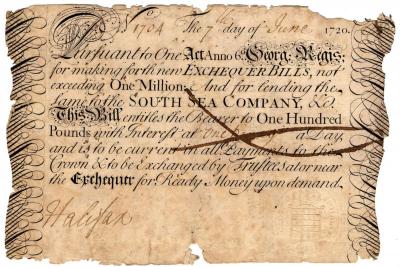 No. 1704 The 7th day of June 1720.
Pursuant to One Act Anno 6. Georg: Regis:
for making forth new EXCHEQUER BILLS, not
exceeding One Million; And for lending the
same to the SOUTH SEA COMPANY, &c.
This Bill entitles the Bearer to One Hundred
Pounds with Interest at One a Day
and is to be current in all Payments to the
Crown & to be Exchanged by Trustees at or near
the Exchequer for Ready Money upon demand.
Halifax